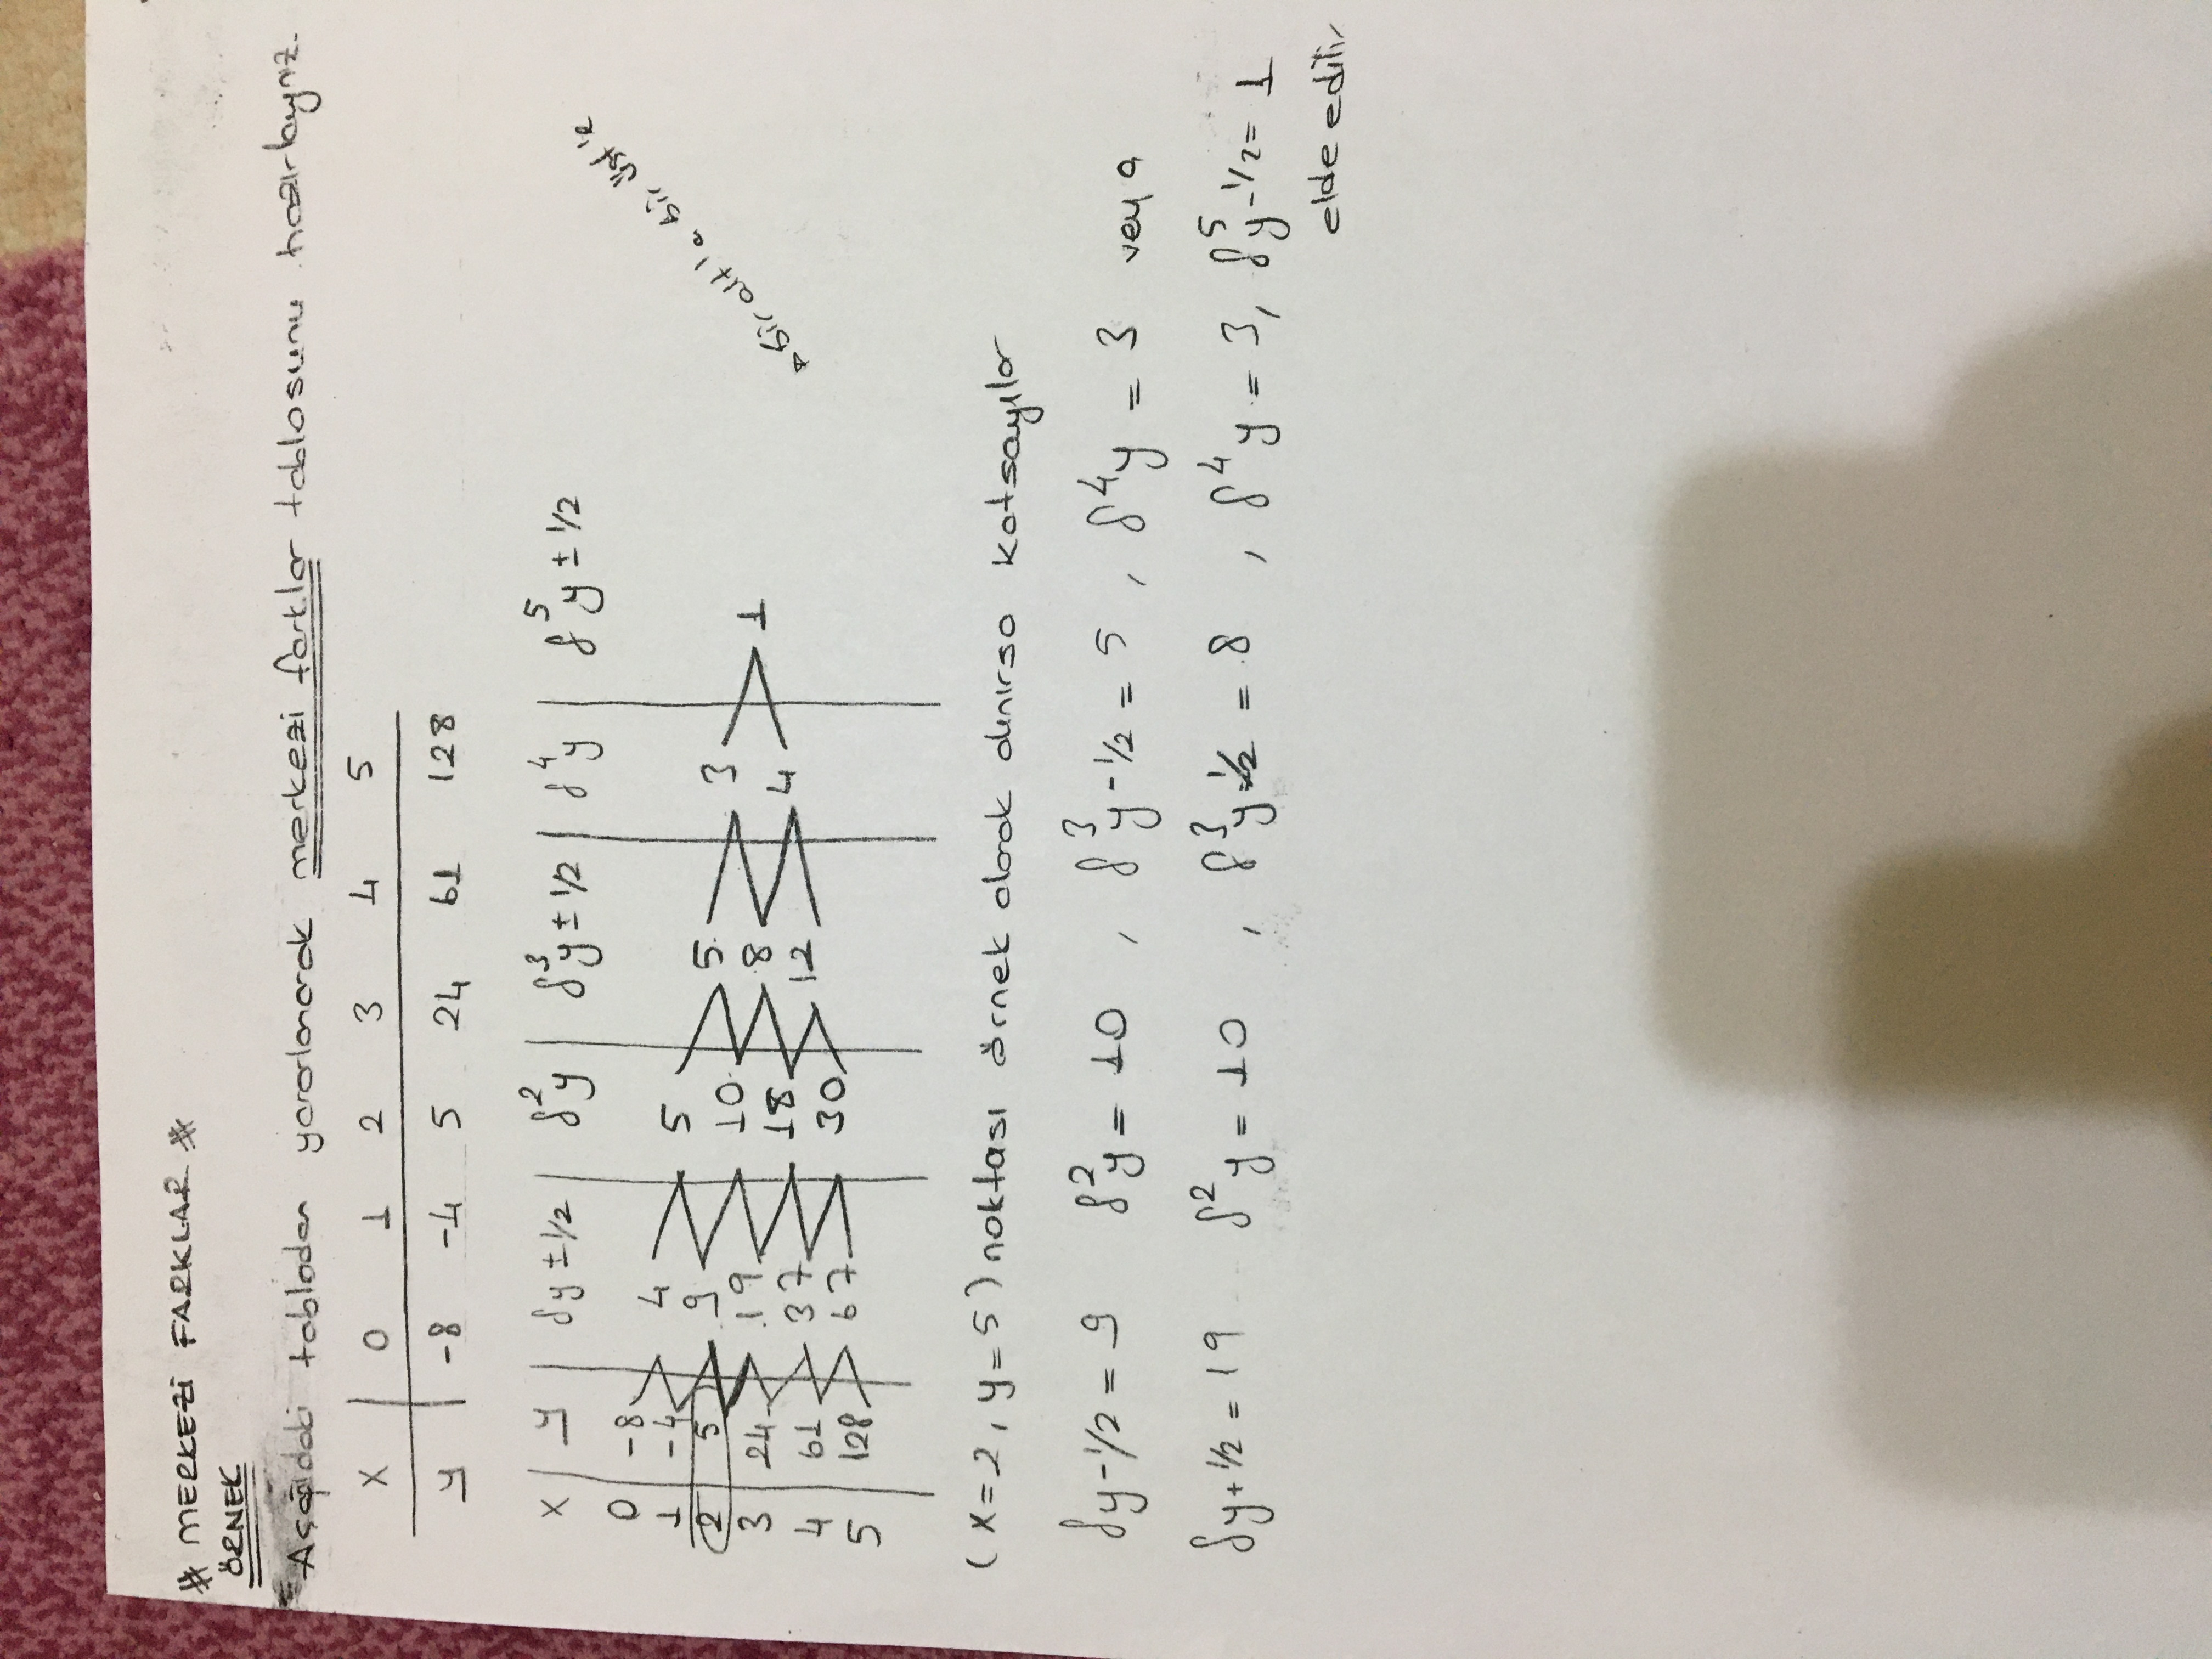 # MERKEZİ FARKLAR #
ÖRNEK
Aşağıdaki tablodan yararlanarak merkezi farklar tablosunu hazırlayınız.
x 0 1 2 3 4 5
y -8 -4 5 24 61 128
x y δy±1/2 δ²y δ³y±1/2 δ⁴y δ⁵y±1/2
0 -8
4
1 -4 5
9 5
2 5 10 3
19 8 1
3 24 18 4
37 12
4 61 30
67
5 128
Bir alt'la bir üst'e
(x=2, y=5) noktası örnek olarak alınırsa katsayılar
δy-1/2 = 9 δ²y = 10 , δ³y-1/2 = 5 , δ⁴y = 3 veya
δy+1/2 = 19 δ²y = 10 , δ³y1/2 = 8 , δ⁴y = 3, δ⁵y-1/2 = 1
elde edilir